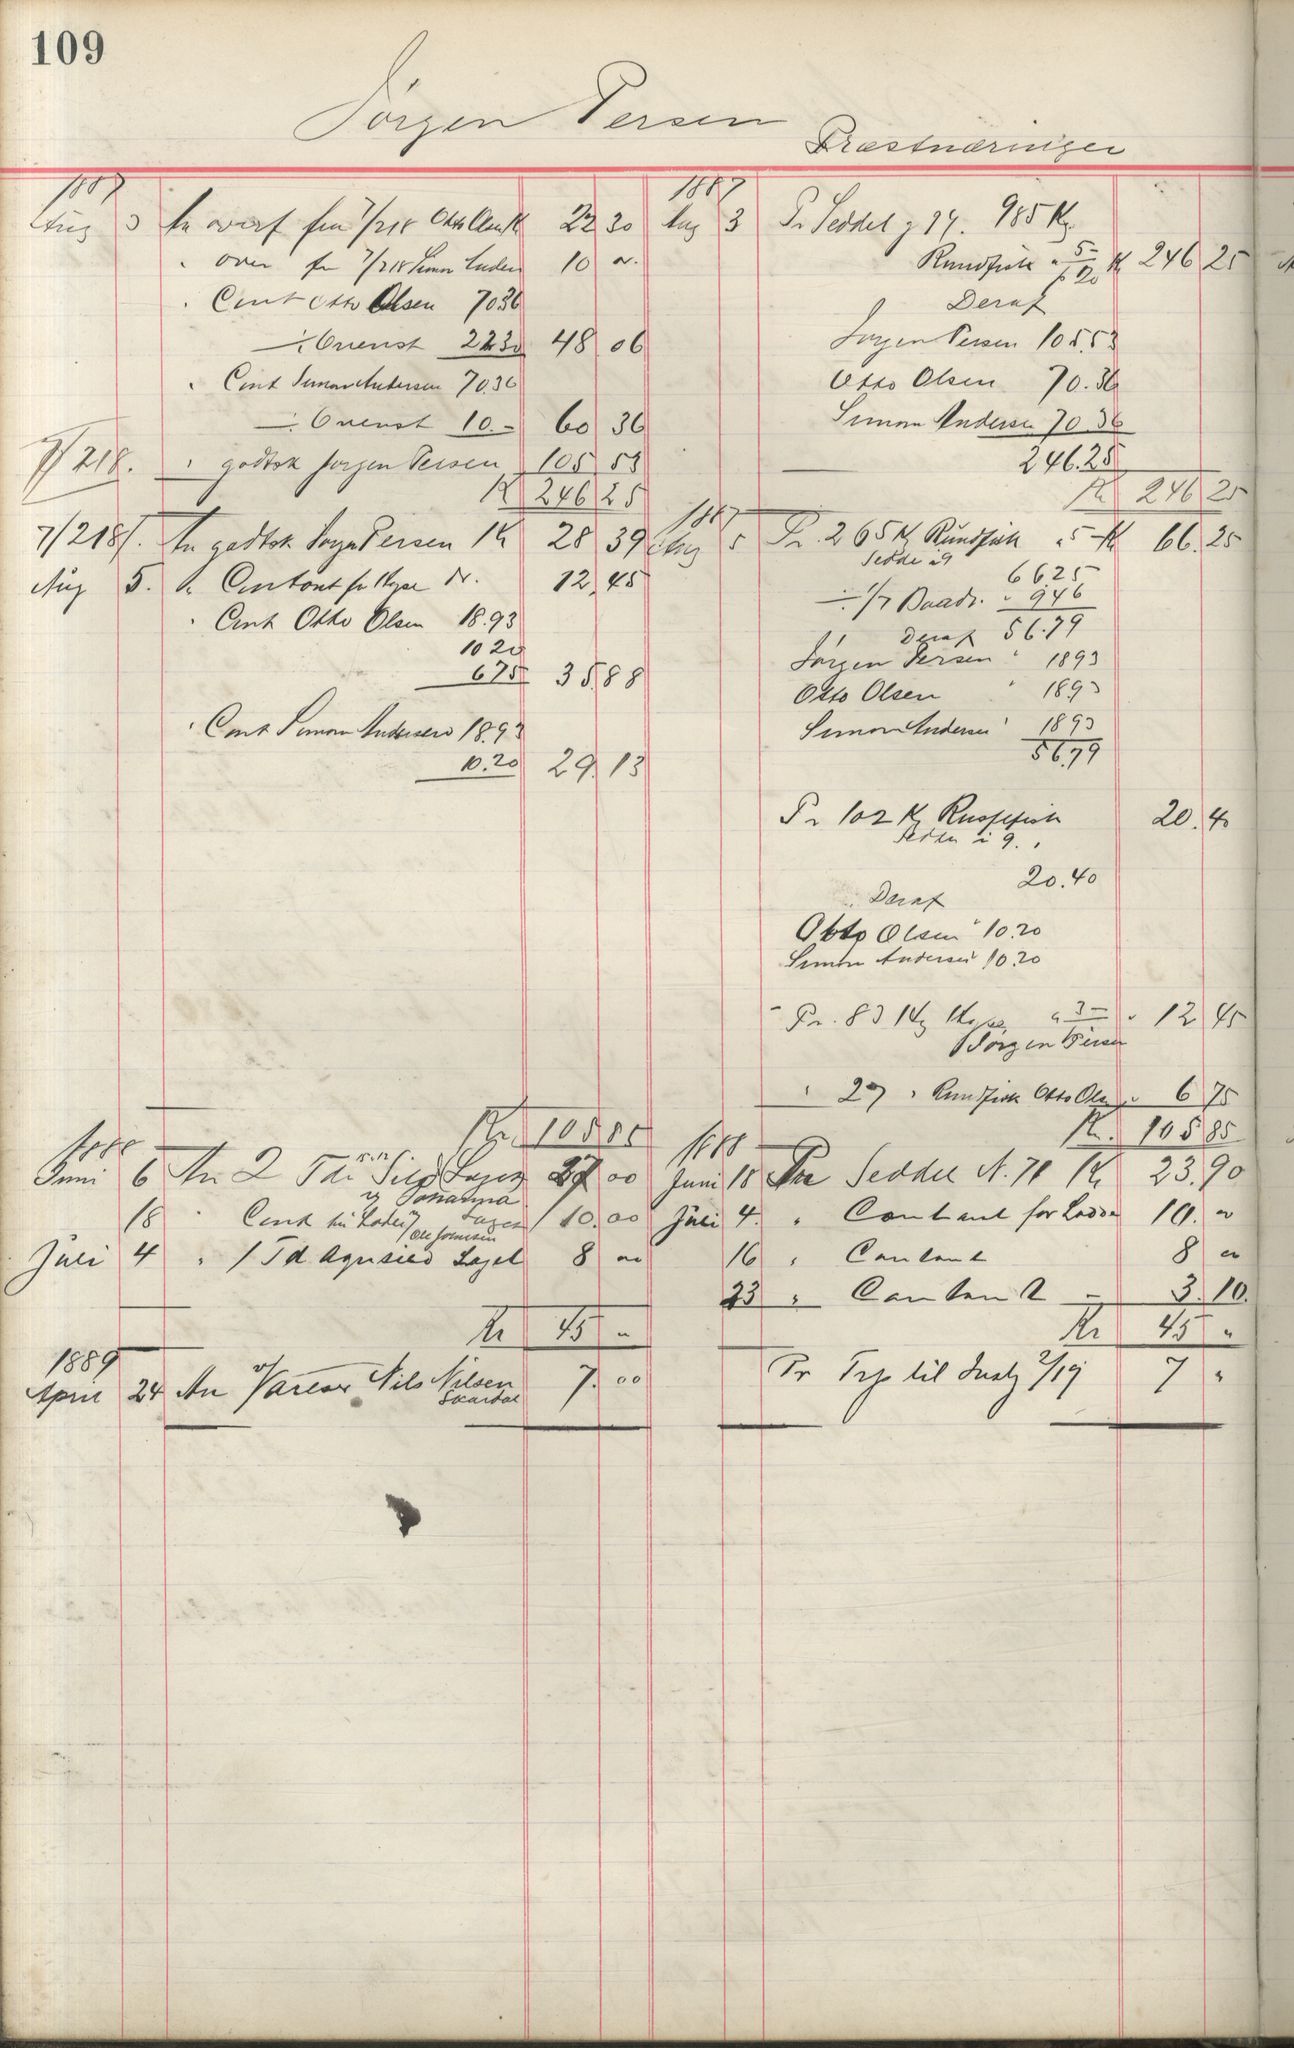 109
Jörgen Persen
Præstnæringen
1887
Aug 3 An overf fra 7/218 Otto Olsen Kr 22 30
" over fra 7/218 Simon Anders 10 "
" Cont Otto Olsen 70 36
÷ Ovenst 22 30 48 06
" Cont Simon Andersen 70.36
÷ Ovenst 10.- 60 36
7/218. " godtsk Jorgen Persen 105 53
Kr 246 25
7/218. An godtsk Jorgen Persen Kr 28 39
Aug 5. An Contant for Hyse Kr. 12.45
" Cont Otto Olsen 18.93
10 20
6 75 35.88
" Cont Simon Andersen 18.93
10.20 29.13
Kr. 105 85
1888
Juni 6 An 2 Tdr Sild Lager 27 00
v/ Johanna
18 " Cont Lager 10.00
Ole Johnsen
Juli 4 " 1 Td Agnsild Lagel 8 "
Kr 45 "
1889
April 24 An Varer v/ Nils Nilsen 7.00
Skardal
1887
Aug 3 Pr Seddel 985 Kg
Rundfisk a 5- Kr 246 25
p 20
Deraf
Jorgen Persen 105.53
Otto Olsen 70.36
Simon Andersen 70 36
246.25
Kr 246 25
1887
Aug 5 Pr. 265 Kg Rundfisk a 5- Kr 66.25
Seddel 19
66.25
÷ 1/7 Baads. " 9 46
Deraf 56.79
Jörgen Persen " 18 93
Otto Olsen " 18 93
Simon Andersen " 18 93
56.79
Pr 102 Kg Russefisk 20.40
20.40
Deraf
Otto Olsen " 10.20
Simon Andersen 10.20
- Pr. 83 Kg Hyse a 3- " 12 45
Jörgen Persen
" 27 " Rundfisk Otto Olsen " 6 75
Kr. 105 85
1888
Juni 18 Pr Seddel N. 71 Kr 23.90
Juli 4. " Contant for Lodde 10. "
16 " Contant 8 "
23 " Contant - 3.10.
Kr 45 "
Pr Trp til 2/19 7 "